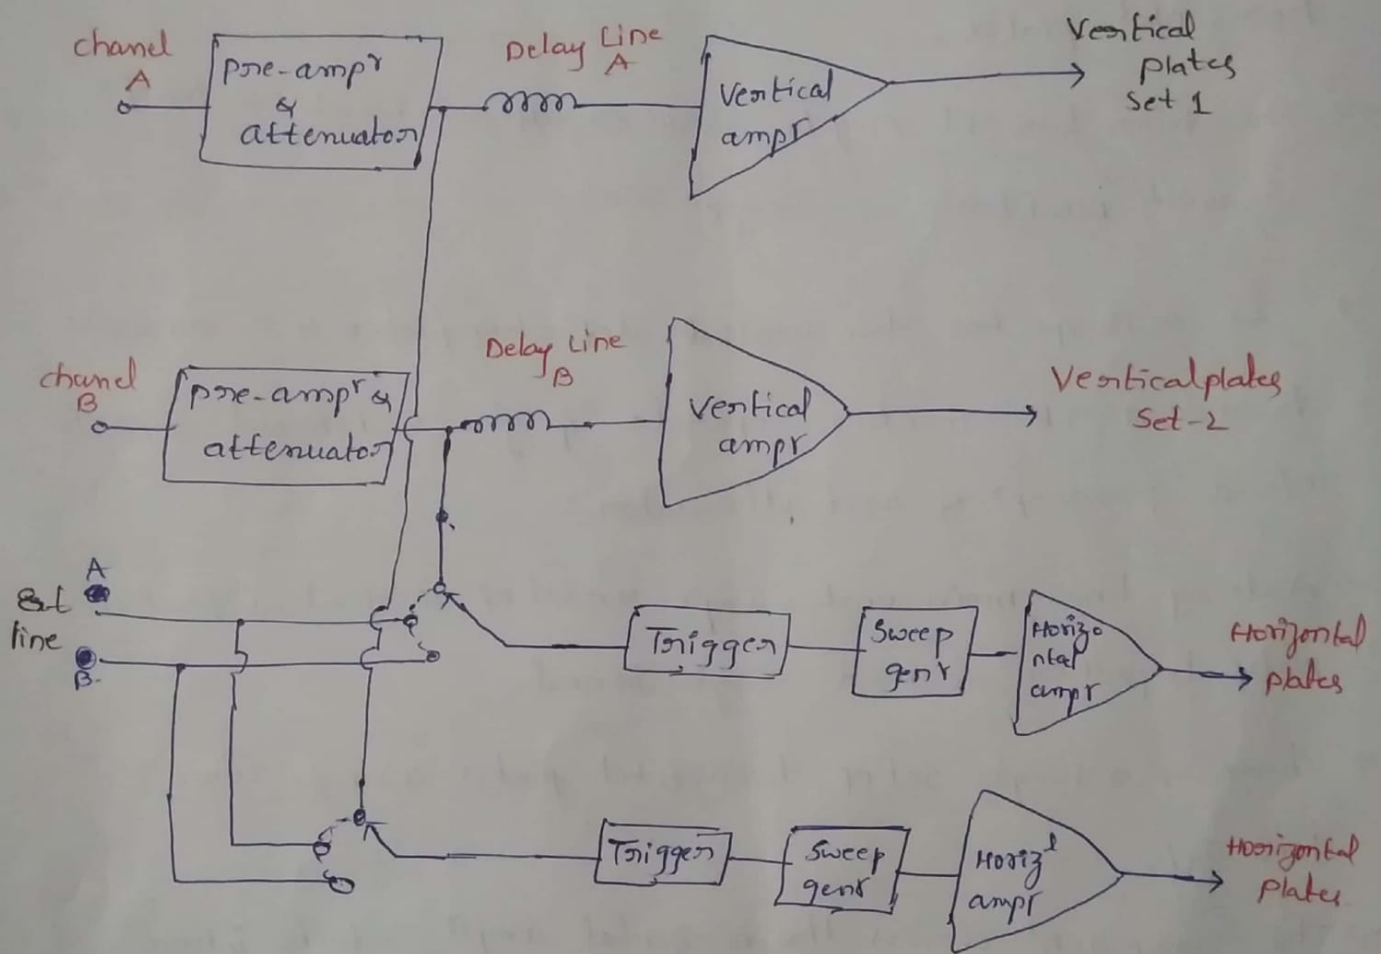 chanel
A
pre-ampr
&
attenuator
Delay Line
A
Vertical
ampr
Vertical
plates
Set 1
chanel
B
pre-ampr &
attenuator
Delay Line
B
Vertical
ampr
Vertical plates
Set-2
A
Ext
line
B.
Trigger
Sweep
genr
Horizo
ntal
ampr
Horizontal
plates
Trigger
Sweep
genr
Horizl
ampr
Horizontal
Plates